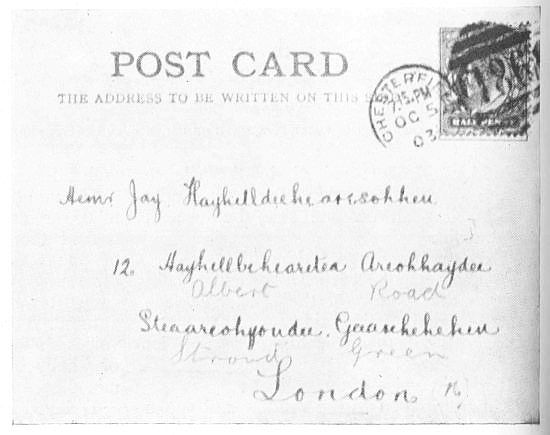 POST CARD
THE ADDRESS TO BE WRITTEN ON THIS
CHESTERFIELD
7.15.PM
OC 5
03
HALF PENNY
Jay
12. Areohhaydee
Albert Road
Steaareohyoudee.
Stroud Green
London N